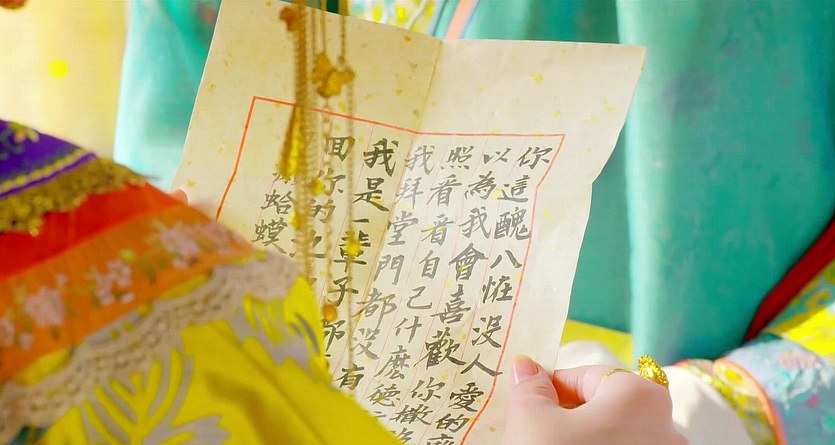 你這醜八恠沒人愛的
以為我會喜歡你撒
照看看自己什麼德
我拜堂門都沒有
我是一輩子都
你的
蛤蟆